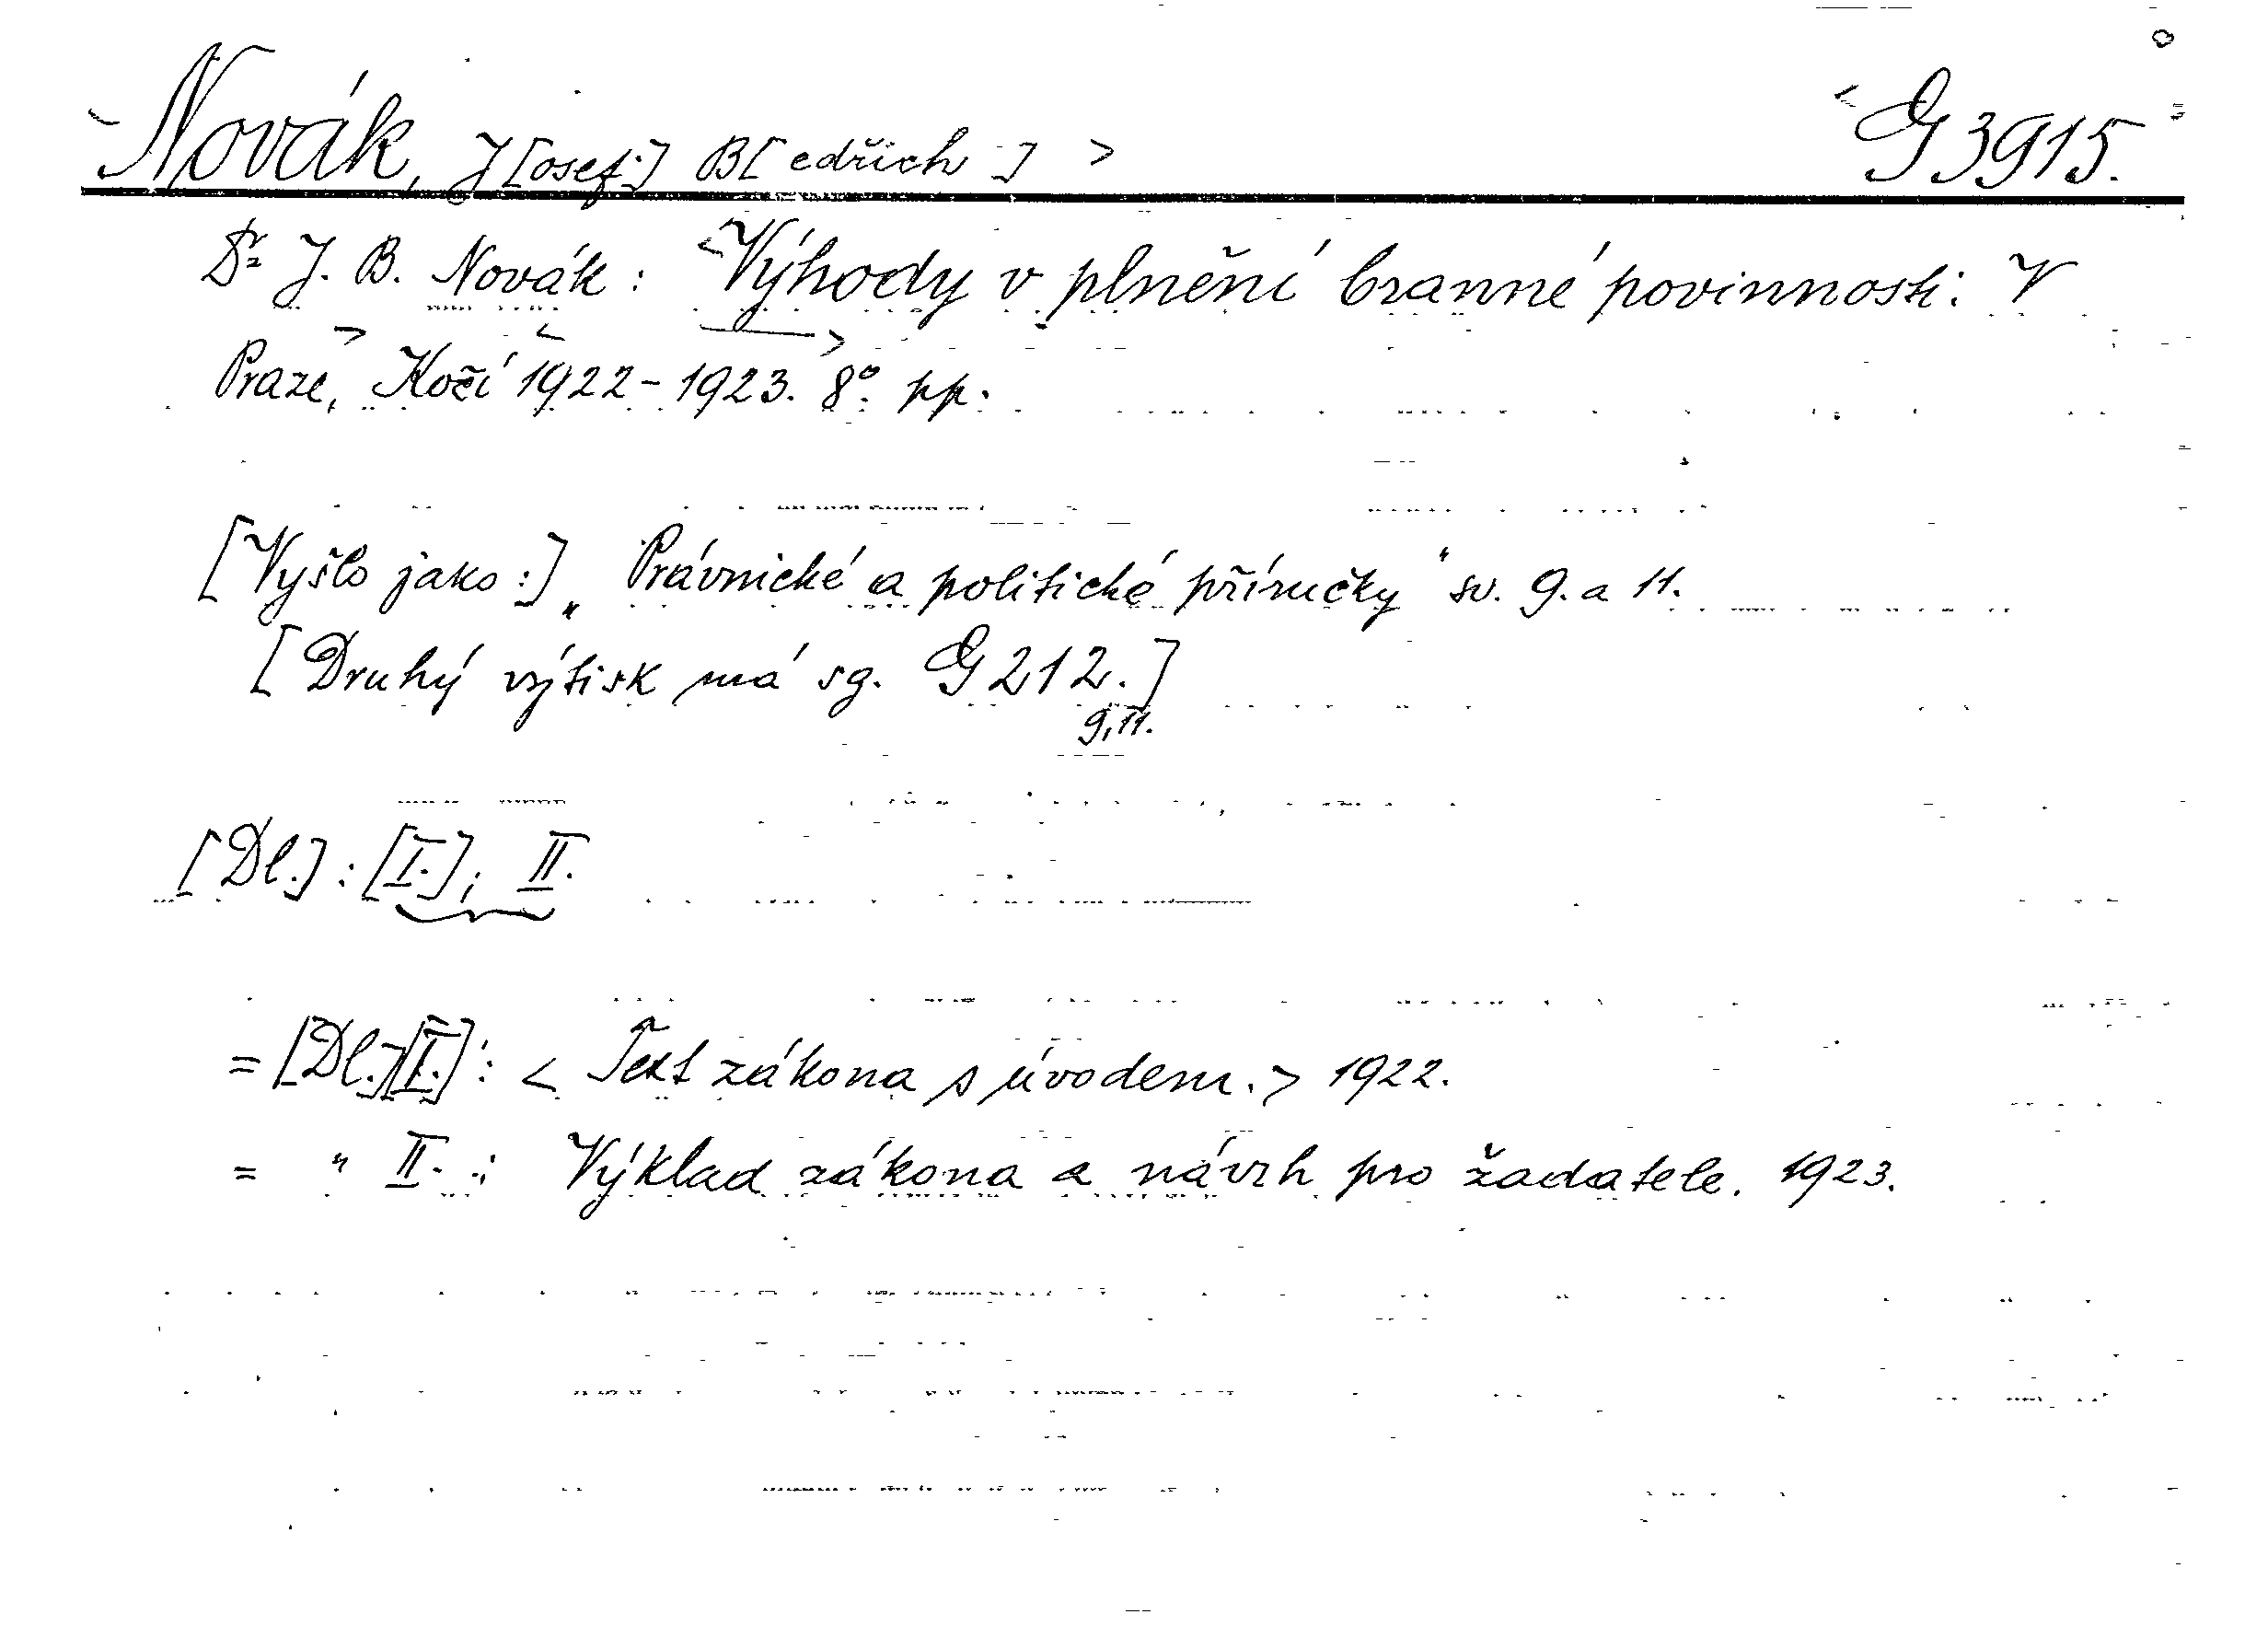 Novák, J[osef.] B[edřich] > G 3915.
Dr J. B. Novák: <Výhody v plnění branné povinnosti. V
Praze, Kočí 1922-1923. 8°. pp.
[Vyšlo jako:] „Právnické a politické příručky" sv. 9. a 11.
[Druhý výtisk má sg. G 212.]
9,11.
[Dl.]: [I.]; II.
= [Dl.][I.]: < Text zákona s úvodem. > 1922.
= " II. : Výklad zákona a návrh pro žadatele. 1923.